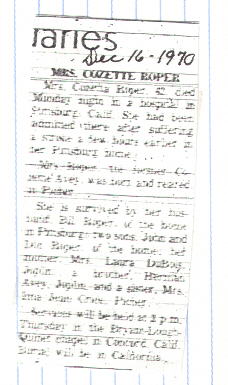 raries
Dec 16-1970
MRS. COZETTE ROPER
Mrs. Cozetta Roper, 52 died
Monday night in a hospital in
Pittsburg, Calif. She had been
admitted there after suffering
a stroke a few hours earlier in
her Pittsburg home.
Mrs. Roper, the former Co
Avey, was born and reared
in Picher.
She is survived by her hus-
band, Bill Roper, of the home
in Pittsburg; two sons, John and
Roper, of the home; her
mother, Mrs. Laura
Joplin, a brother,
Avey, Joplin, and a sister, Mrs.
Jean Picher.
Services will be held at 2 p.m.
Thursday in the
chapel in Concord, Calif.
Burial will be in California.